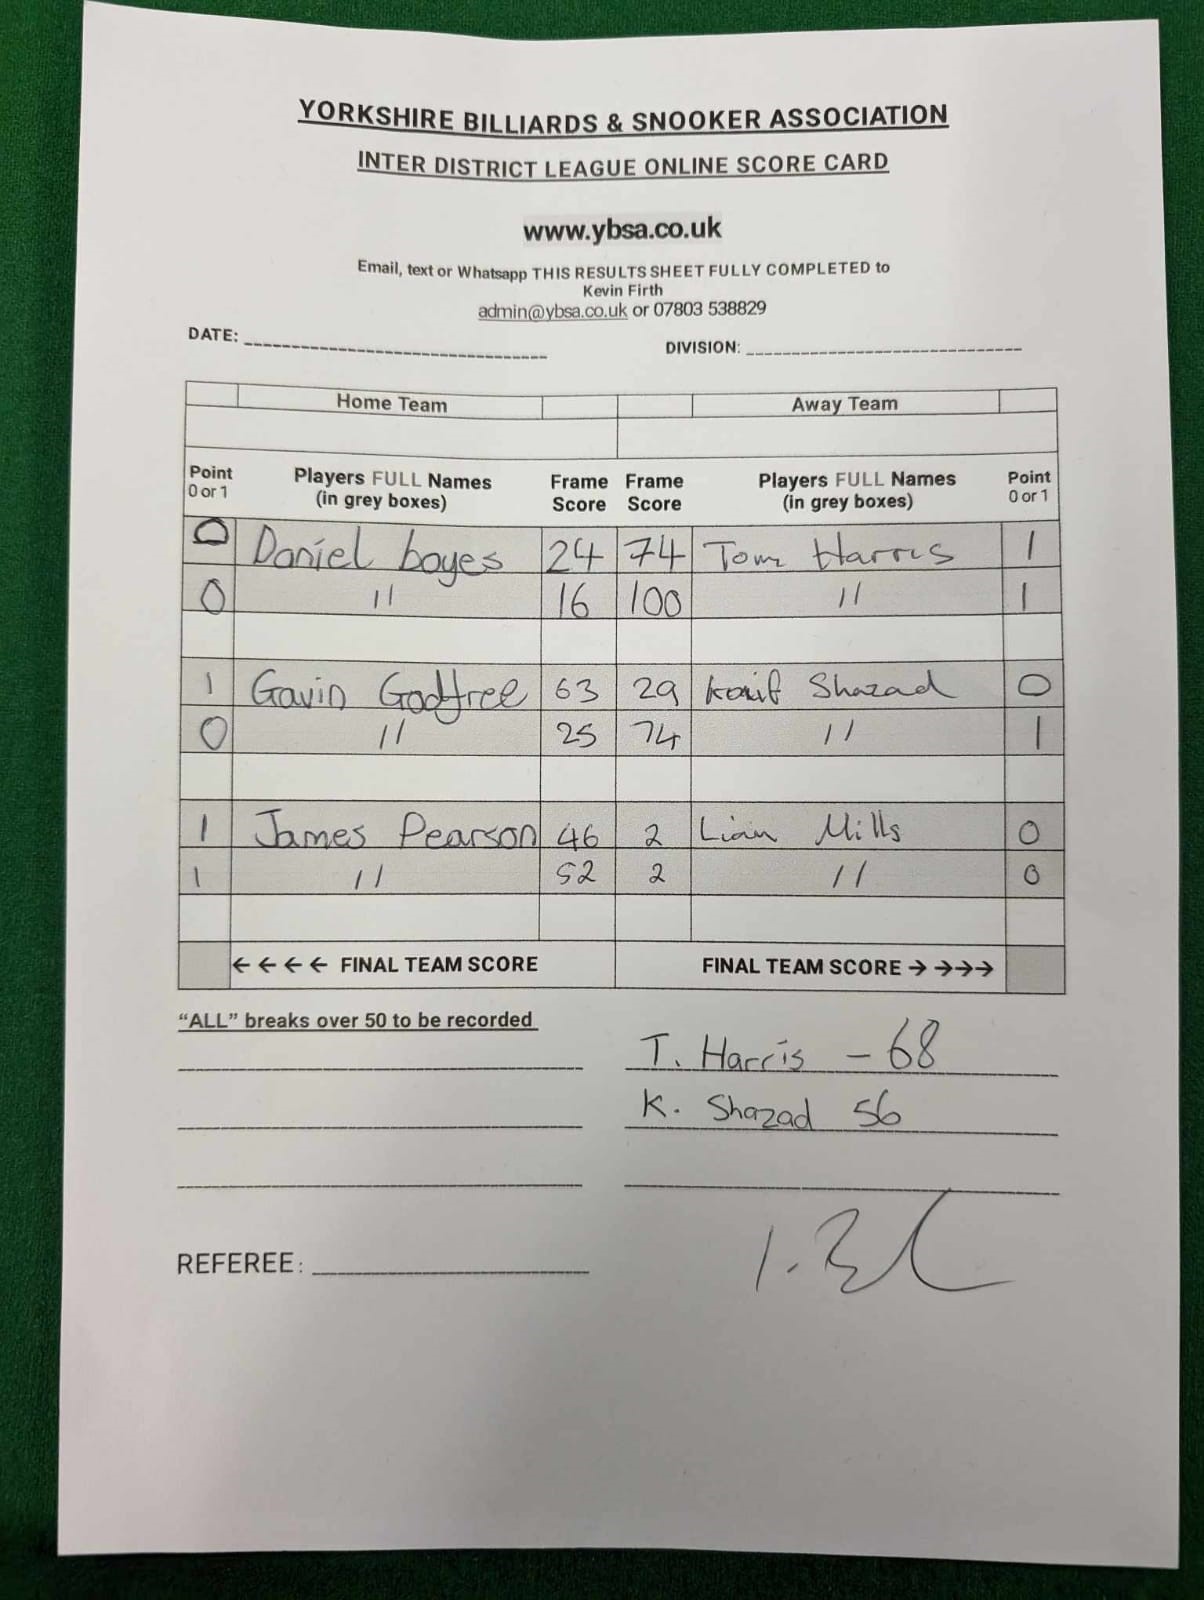 YORKSHIRE BILLIARDS & SNOOKER ASSOCIATION
INTER DISTRICT LEAGUE ONLINE SCORE CARD
www.ybsa.co.uk
Email, text or Whatsapp THIS RESULTS SHEET FULLY COMPLETED to
Kevin Firth
admin@ybsa.co.uk or 07803 538829
DATE: DIVISION:
Home Team Away Team
Point Players FULL Names Frame Frame Players FULL Names Point
0 or 1 (in grey boxes) Score Score (in grey boxes) 0 or 1
0 Daniel boyes 24 74 Tom Harris 1
0 " 16 100 " 1
1 Gavin Godfree 63 29 Shazad 0
0 " 25 74 " 1
1 James Pearson 46 2 Liam Mills 0
1 " 52 2 " 0
←←←← FINAL TEAM SCORE FINAL TEAM SCORE →→→→
"ALL" breaks over 50 to be recorded
T. Harris - 68
K. Shazad 56
REFEREE: